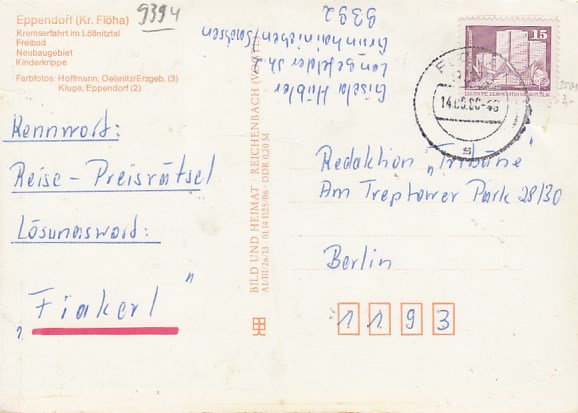 Eppendorf (Kr. Flöha)
Kremserfahrt im Lößnitztal
Freibad
Neubaugebiet
Kinderkrippe
Farbfotos: Hoffmann, Oelsnitz/Erzgeb. (3)
Kluge, Eppendorf (2)
9394
Gisela Hübler
Grünhainichen/Sachsen
9392
15
DEUTSCHE DEMOKRATISCHE REPUBLIK
Kennwort:
Reise - Preisrätsel
Lösungswort:
„Fiakerl"
BILD UND HEIMAT REICHENBACH (VOGTL)
A1/III/26/13 01 14 1125/06 DDR 0,20 M
Redaktion „Tribüne"
Am Treptower Park 28/30
Berlin
1193